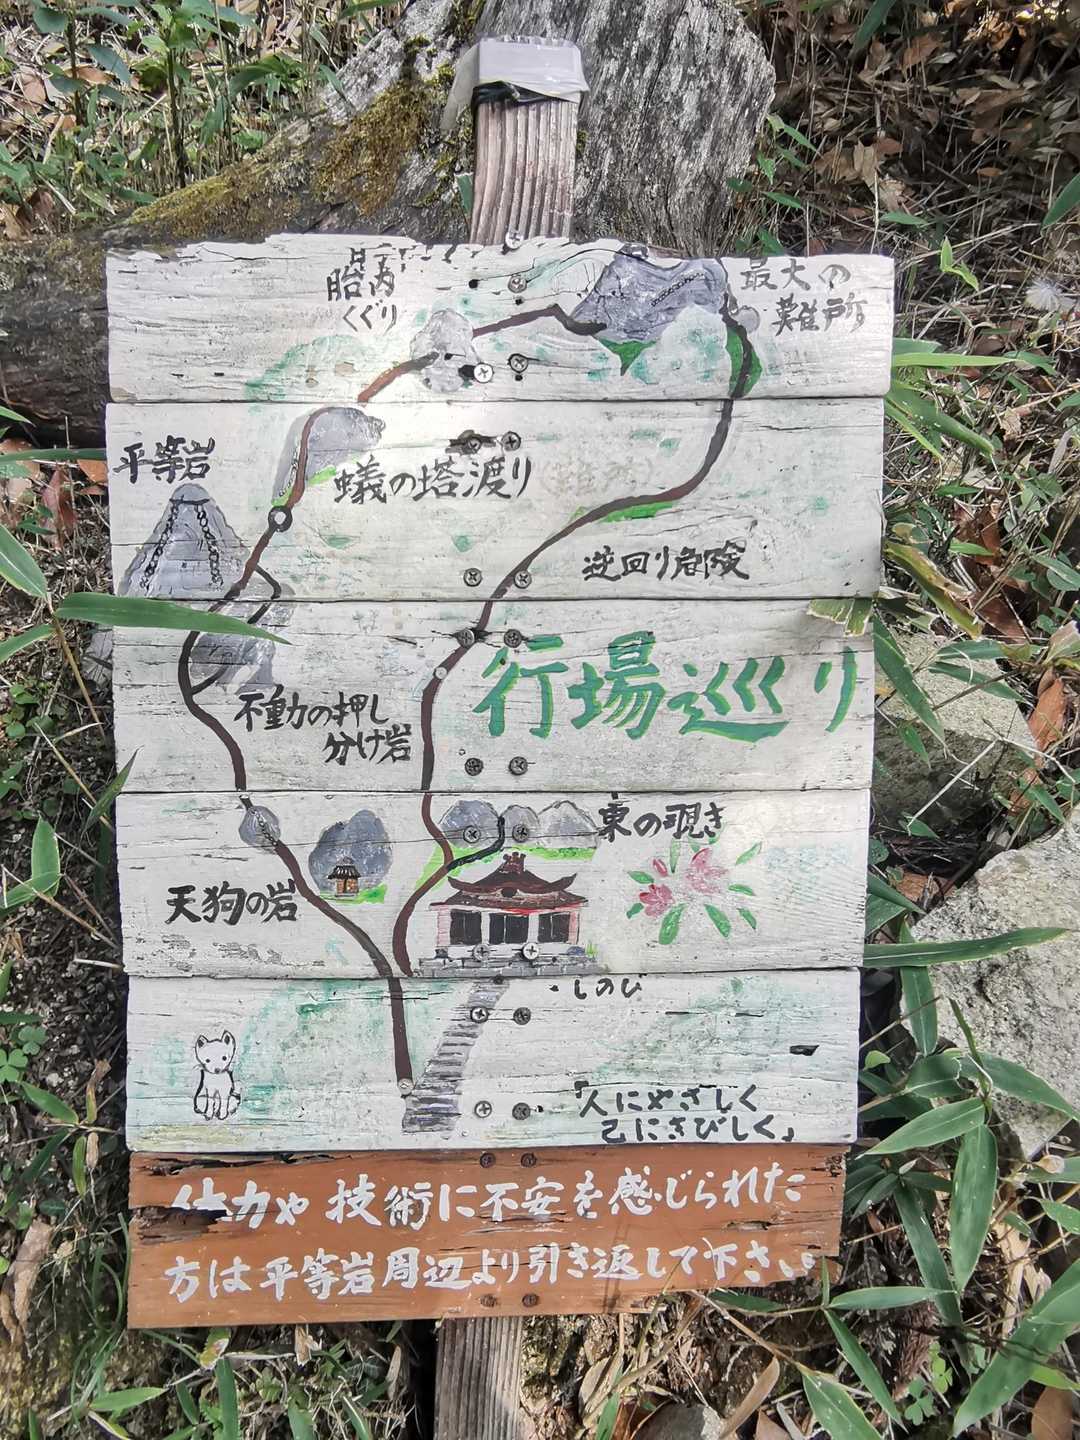 胎内
くぐり
最大の
難所
平等岩
蟻の塔渡り
(難所)
逆回り危険
行場巡り
不動の押し
分け岩
東の覗き
天狗の岩
・しのび
「人にやさしく
己にきびしく」
体力や技術に不安を感じられた
方は平等岩周辺より引き返して下さい